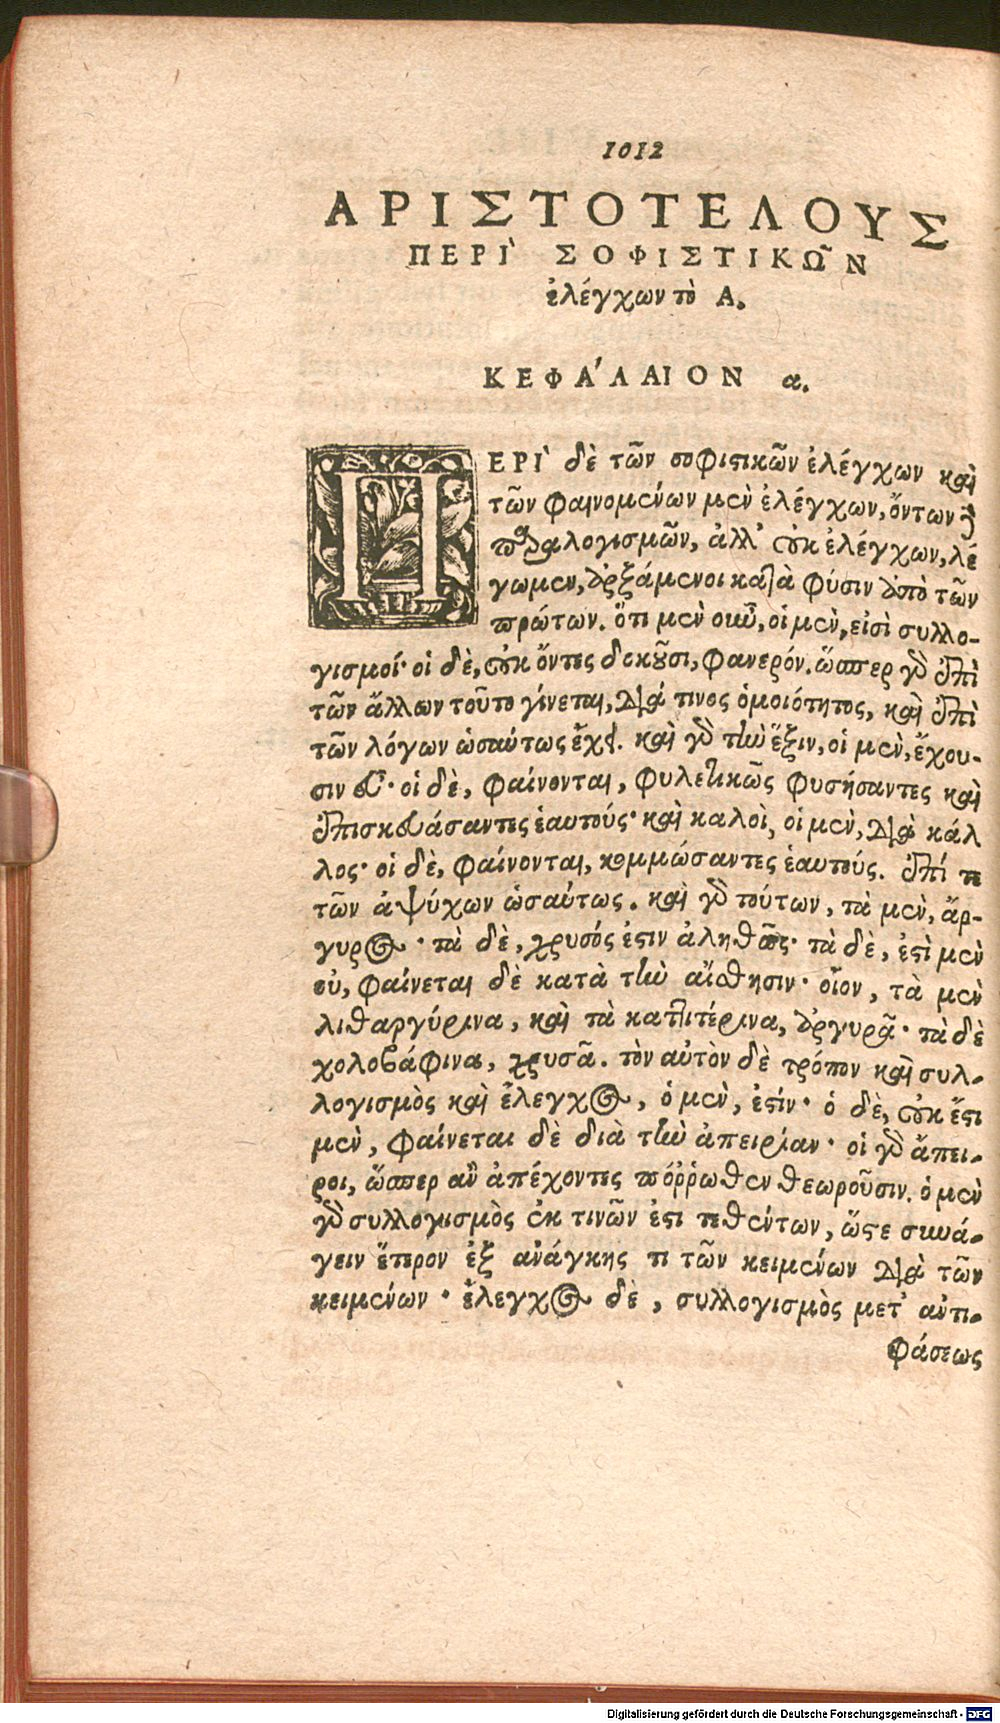 1012
ΑΡΙΣΤΟΤΕΛΟΥΣ
ΠΕΡΙ` ΣΟΦΙΣΤΙΚΩ͂Ν
ἐλέγχων τὸ Α.
ΚΕΦΑ΄ΛΑΙΟΝ α.
ΠΕΡΙ` δὲ τῶν σοφιστικῶν ἐλέγχων καὶ
τῶν φαινομένων μὲν ἐλέγχων, ὄντων δὲ
παραλογισμῶν, ἀλλ' οὐκ ἐλέγχων, λέ
γωμεν, ἀρξάμενοι κατὰ φύσιν ἀπὸ τῶν
πρώτων. ὅτι μὲν οὖν, οἱ μὲν, εἰσὶ συλλο-
γισμοί· οἱ δὲ, οὐκ ὄντες δοκοῦσι, φανερόν. ὥσπερ γὰρ ἐπὶ
τῶν ἄλλων τοῦτο γίνεται, διά τινος ὁμοιότητος, καὶ ἐπὶ
τῶν λόγων ὡσαύτως ἔχει. καὶ γὰρ τὴν ἕξιν, οἱ μὲν, ἔχου-
σιν εὖ· οἱ δὲ, φαίνονται, φυλετικῶς φυσήσαντες καὶ
ἐπισκευάσαντες ἑαυτούς· καὶ καλοὶ, οἱ μὲν, διὰ κάλ
λος· οἱ δὲ, φαίνονται, κομμώσαντες ἑαυτούς. ἐπί τε
τῶν ἀψύχων ὡσαύτως. καὶ γὰρ τούτων, τὰ μὲν, ἄρ-
γυρος· τὰ δὲ, χρυσός ἐστιν ἀληθῶς· τὰ δὲ, ἐστὶ μὲν
οὐ, φαίνεται δὲ κατὰ τὴν αἴσθησιν· οἷον, τὰ μὲν
λιθαργύρινα, καὶ τὰ καττιτέρινα, ἀργυρᾶ· τὰ δὲ
χολοβάφινα, χρυσᾶ. τὸν αὐτὸν δὲ τρόπον καὶ συλ-
λογισμὸς καὶ ἔλεγχος, ὁ μὲν, ἐστίν· ὁ δὲ, οὐκ ἔστι
μὲν, φαίνεται δὲ διὰ τὴν ἀπειρίαν· οἱ γὰρ ἄπει-
ροι, ὥσπερ ἂν ἀπέχοντες πόῤῥωθεν θεωροῦσιν. ὁ μὲν
γὰρ συλλογισμὸς ἐκ τινῶν ἐστι τεθέντων, ὥστε συνά-
γειν ἕτερον ἐξ ἀνάγκης τι τῶν κειμένων διὰ τῶν
κειμένων· ἔλεγχος δὲ, συλλογισμὸς μετ' ἀντι-
φάσεως
Digitalisierung gefördert durch die Deutsche Forschungsgemeinschaft - DFG